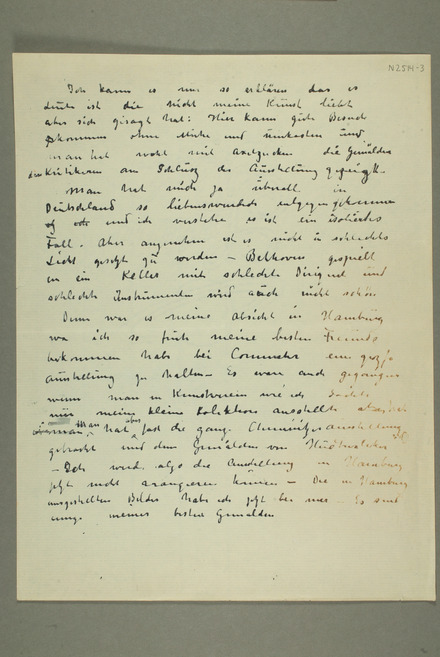 N 2514-3
Ich kann es nur so erklären das es
leute ist die nicht meine Kunst liebt
aber sich gesagt hat: Hier kann gute Besuch
kommen ohne Mühe und unkosten und
man hat wohl mit die Gemälden
Kritikern am Schlusz der Ausstellung gezeigt.
Man hat mich ja überall in
Deutschland so liebenswürdig entgegengekommen
und ich verstehe es ist ein isoliertes
Fall. Aber angenehm ist es nicht in schlechtes
Licht gesetzt zu werden – Bethoven gespielt
in ein Keller mit schlecht Dirigent und
schlechte Instrumenten wird auch nicht schön
Denn war es meine absicht in Hamburg
wo ich so früh meine besten Freunde
bekommen habe bei Commeter ein grosze
ausstellung zu halten – Es wäre auch gegangen
wenn man in Kunstverein wie ich
nur meine kleine Kolektion ausstellte
man hat aber fast die ganz. Chemnitzerausstellung
gebracht und dem Gemälden von
– Ich werde also die Ausstellung in Hamburg
jetzt nicht arangieren können – Die in Hamburg
ausgestellten Bilder habe ich jetzt bei mir – Es sind
einige meiner besten Gemälden